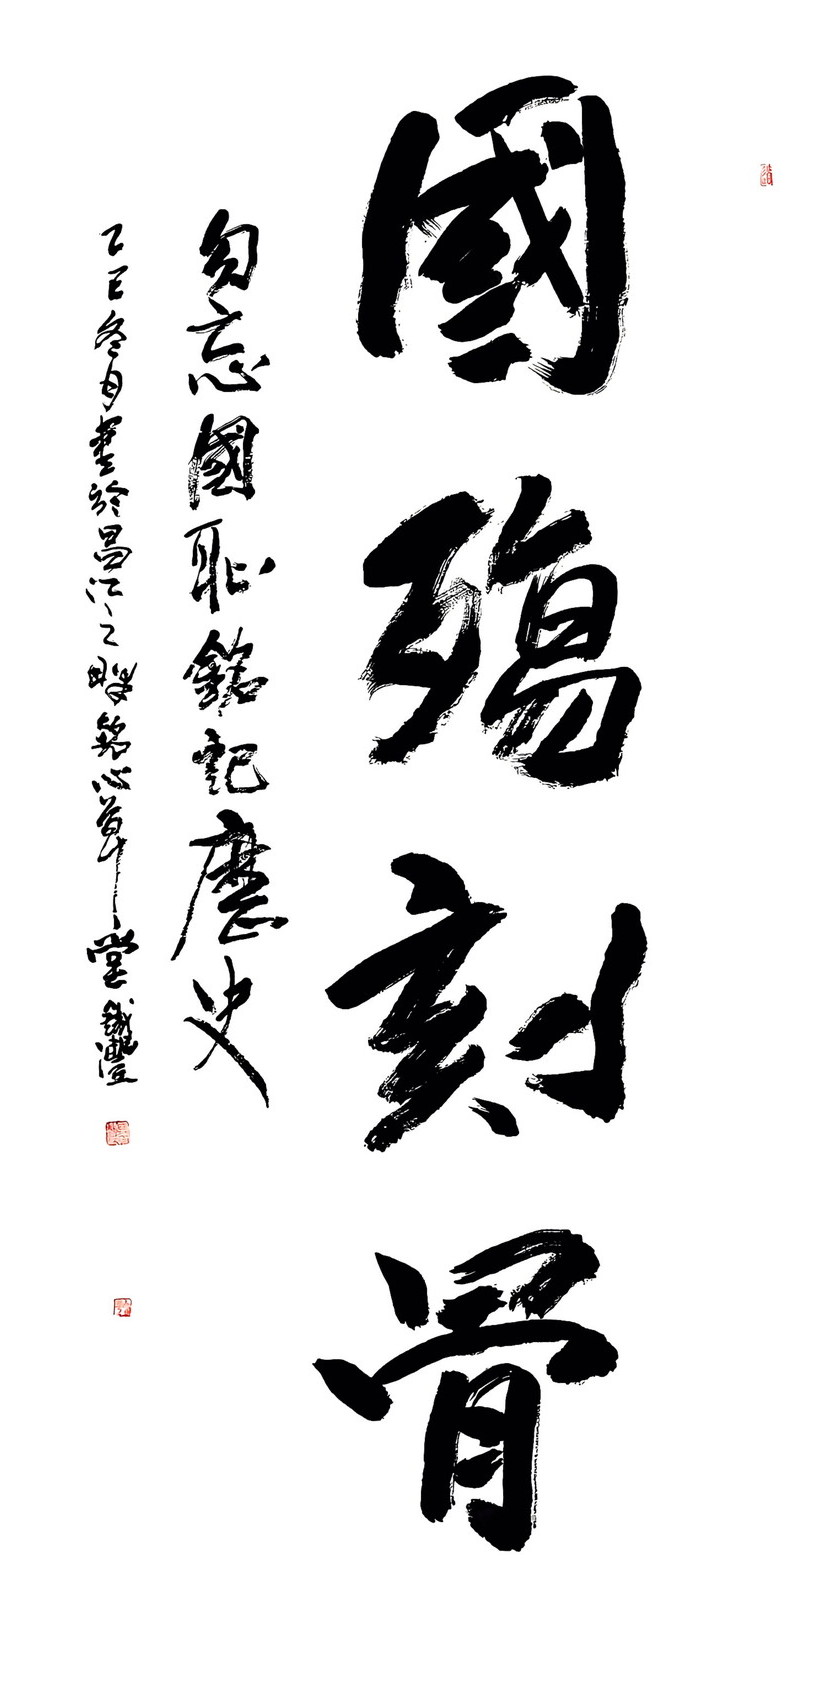 國殤刻骨
勿忘國恥銘記歷史
乙巳冬月書於昌江之畔銘心草堂鐵灃